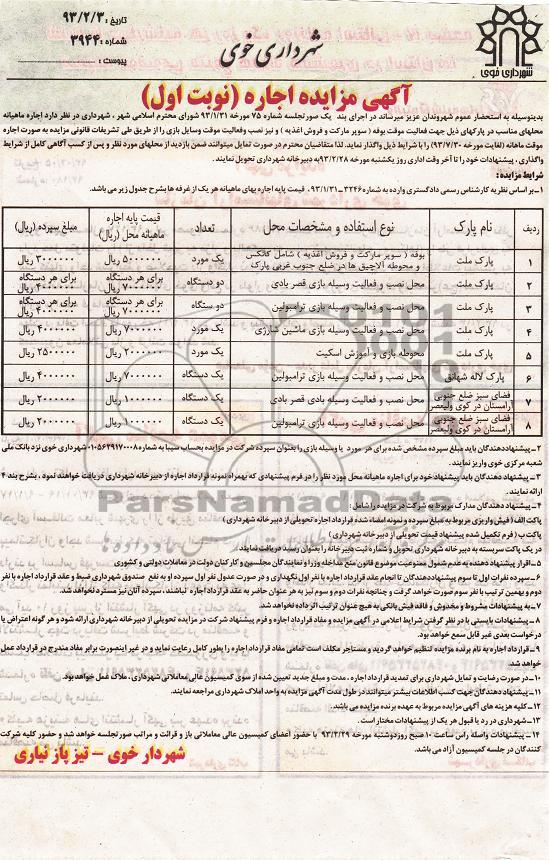 تاریخ : ۹۳/۲/۳
شماره : ۳۹۴۴
پیوست :
شهرداری خوی
شهرداری خوی
آگهی مزایده اجاره (نوبت اول)
بدینوسیله به استحضار عموم شهروندان عزیز میرساند در اجرای بند یک صورتجلسه شماره ۷۵ مورخه ۹۳/۱/۳۱ شورای محترم اسلامی شهر ، شهرداری در نظر دارد اجاره ماهیانه
محلهای مناسب در پارکهای ذیل جهت فعالیت موقت بوفه ( سوپر مارکت و فروش اغذیه ) و نیز نصب وفعالیت موقت وسایل بازی را از طریق طی تشریفات قانونی مزایده به صورت اجاره
موقت ماهانه (لغایت مورخه ۹۳/۷/۳۰) را با شرایط ذیل واگذار نماید. لذا متقاضیان محترم در صورت تمایل میتوانند ضمن بازدید از محلهای مورد نظر و پس از کسب آگاهی کامل از شرایط
واگذاری ، پیشنهادات خود را تا آخر وقت اداری روز یکشنبه مورخه ۹۳/۲/۲۸ به دبیرخانه شهرداری تحویل نمایند.
شرایط مزایده :
۱ـ بر اساس نظریه کارشناس رسمی دادگستری وارده به شماره ۳۳۴۶۰ـ۹۳/۱/۳۱، قیمت پایه اجاره بهای ماهیانه هر یک از غرفه ها بشرح جدول زیر می باشد.
ردیف نام پارک نوع استفاده و مشخصات محل تعداد قیمت پایه اجاره ماهیانه محل (ریال) مبلغ سپرده (ریال)
۱ پارک ملت بوفه ( سوپر مارکت و فروش اغذیه ) شامل کانکس و محوطه آلاچیق ها در ضلع جنوب غربی پارک یک مورد ۵۰۰۰۰۰۰ ریال ۳۰۰۰۰۰۰ ریال
۲ پارک ملت محل نصب و فعالیت وسیله بازی قصر بادی دو دستگاه برای هر دستگاه ۷۰۰۰۰۰۰ ریال برای هر دستگاه ۴۰۰۰۰۰۰ ریال
۳ پارک ملت محل نصب و فعالیت وسیله بازی ترامبولین دو ستگاه برای هر دستگاه ۷۰۰۰۰۰۰ ریال برای هر دستگاه ۴۰۰۰۰۰۰ ریال
۴ پارک ملت محل نصب و فعالیت وسیله بازی ماشین شارژی یک مورد ۷۰۰۰۰۰۰ ریال ۴۰۰۰۰۰۰ ریال
۵ پارک ملت محوطه بازی و آموزش اسکیت یک مورد ۲۰۰۰۰۰۰ ریال ۲۵۰۰۰۰۰ ریال
۶ پارک لاله شهانق محل نصب و فعالیت وسیله بازی ترامبولین یک دستگاه ۷۰۰۰۰۰۰ ریال ۴۰۰۰۰۰۰ ریال
۷ فضای سبز ضلع جنوبی آرامستان در کوی ولیعصر محل نصب و فعالیت وسیله بازی بادی قصر بادی یک دستگاه ۱۰۰۰۰۰۰ ریال ۲۰۰۰۰۰۰ ریال
۸ فضای سبز ضلع جنوبی آرامستان در کوی ولیعصر محل نصب و فعالیت وسیله بازی ترامبولین یک دستگاه ۱۰۰۰۰۰۰ ریال ۲۰۰۰۰۰۰ ریال
۲ـ پیشنهاددهندگان باید مبلغ سپرده مشخص شده برای هر مورد یا وسیله بازی را بعنوان سپرده شرکت در مزایده بحساب سیبا به شماره ۰۱۰۵۶۲۹۱۷۰۰۰۸ شهرداری خوی نزد بانک ملی
شعبه مرکزی خوی واریز نمایند.
۳ـ پیشنهاد دهندگان باید پیشنهاد خود برای اجاره ماهیانه محل مورد نظر را در فرم پیشنهادی که بهمراه نمونه قرارداد اجاره از دبیرخانه شهرداری دریافت خواهند نمود ، بشرح بند ۴
ارائه نمایند.
۴ـ پیشنهاد دهندگان مدارک مربوط به شرکت در مزایده را شامل :
پاکت الف ( فیش واریزی مربوط به مبلغ سپرده و نمونه امضاء شده قرارداد اجاره تحویلی از دبیرخانه شهرداری )
پاکت ب ( فرم تکمیل شده پیشنهاد قیمت تحویلی از دبیرخانه شهرداری )
در یک پاکت سربسته به دبیرخانه شهرداری تحویل و شماره ثبت دبیرخانه را بعنوان رسید دریافت نمایند
۵ـ اقرار پیشنهاد دهنده به عدم شمول ممنوعیت موضوع قانون منع مداخله وزرا و نمایندگان مجلسین و کارکنان دولت در معاملات دولتی و کشوری
۶ـ سپرده نفرات اول تا سوم پیشنهاددهندگان تا انجام عقد قرارداد اجاره با نفر اول نگهداری و در صورت عدول نفر اول سپرده او به نفع صندوق شهرداری ضبط و عقد قرارداد اجاره با نفر
دوم و بهمین ترتیب با نفر سوم صورت خواهد گرفت و چنانچه نفرات دوم و سوم نیز به هر عنوان حاضر به عقد قرارداد اجاره نباشند، سپرده آنان نیز مسترد نخواهد شد.
۷ـ به پیشنهادات مشروط و مخدوش و فاقد فیش بانکی به هیچ عنوان ترتیب اثر داده نخواهد شد.
۸ـ پیشنهادات بایستی با در نظر گرفتن شرایط اعلامی در آگهی مزایده و مفاد قرارداد اجاره و فرم پیشنهاد شرکت در مزایده تحویلی از دبیرخانه شهرداری ارائه شود و هر گونه اعتراض یا
درخواست بعدی غیر قابل سمع خواهد بود.
۹ـ قرارداد اجاره به نام برنده مزایده تنظیم خواهد گردید و مستاجر مکلف است تمامی مفاد قرارداد اجاره را بطور کامل رعایت نماید و در غیر اینصورت برابر مفاد مندرج در قرارداد عمل
خواهد شد.
۱۰ـ در صورت رضایت و تمایل شهرداری برای تمدید قرارداد اجاره ، مدت و مبلغ جدید تعیین شده از سوی کمیسیون عالی معاملاتی شهرداری ، ملاک عمل خواهد بود.
۱۱ـ پیشنهاد دهندگان جهت کسب اطلاعات بیشتر میتوانند در طول مدت آگهی مزایده به واحد املاک شهرداری مراجعه نمایند.
۱۲ـ کلیه هزینه های آگهی مزایده مربوط به عهده برنده مزایده می باشد.
۱۳ـ شهرداری در رد یا قبول هر یک از پیشنهادات مختار است .
۱۴ـ پیشنهادات واصله راس ساعت ۱۰ صبح روز دوشنبه مورخه ۹۳/۲/۲۹ با حضور اعضای کمیسیون عالی معاملاتی باز و قرائت و مراتب صورتجلسه خواهد شد و حضور کلیه شرکت
کنندگان در جلسه کمیسیون آزاد می باشد.
شهردار خوی – تیز پاز نیاری
ParsNamadData